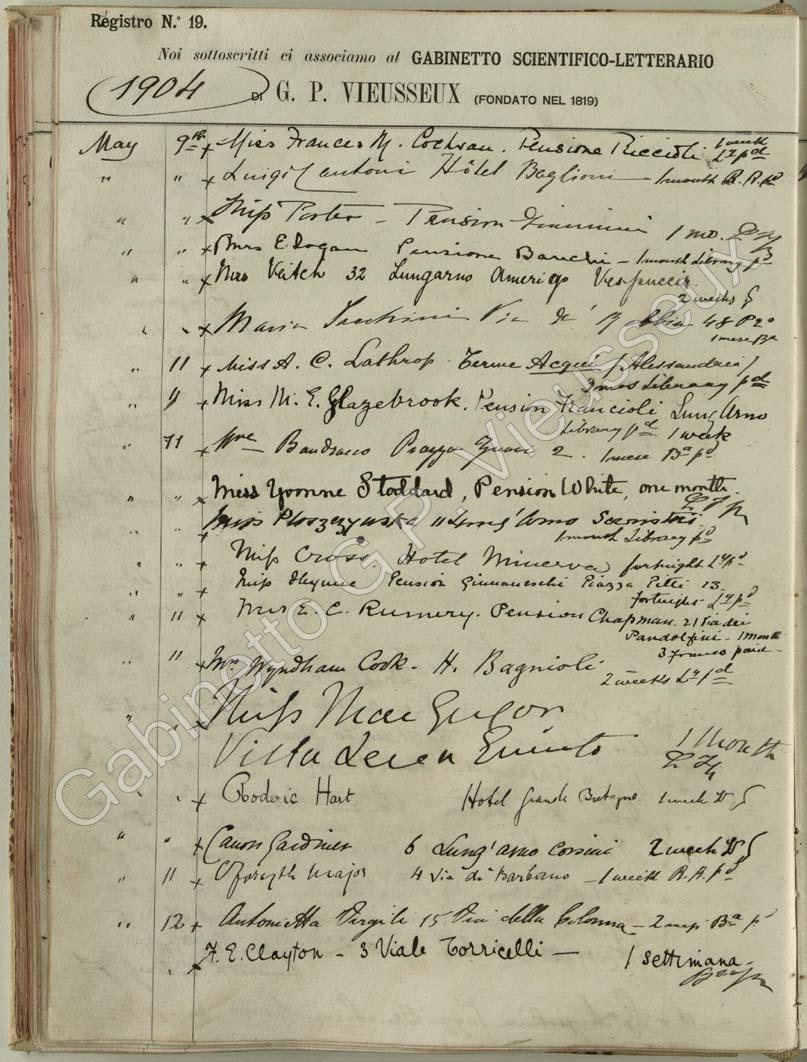 Registro N.º 19.
Noi sottoscritti ci associamo al GABINETTO SCIENTIFICO-LETTERARIO
1904 DI G. P. VIEUSSEUX (FONDATO NEL 1819)
May 9th x Miss Frances M. Cochran. Pensione Riccioli 1 week
Ly pd
" " x Luigi Cantoni Hôtel Baglioni — 1 month R. R. pd
" " x Miss Porter — Pension 1 mo.
" " x Mrs E. Logan Pensione Banchi — 1 month Library pd
" " x Mrs Veitch 32 Lungarno Amerigo Vespucci
2 weeks
" " x Maria Via 48 P2o
1 mese Ba
" 11 x Miss A. C. Lathrop. Terme Acqui / Alessandria /
3 mos Library pd
" 11 x Miss M. E. Glazebrook. Pension Francioli Lung'Arno
Library pd 1 week
" 11 x Piazza 2. 1 mese Ba pd
" " x Miss Yvonne Stoddard, Pension White, one month.
" " x Miss 11 Lung'Arno Serristori
1 month Library pd
" " x Miss Cross Hotel Minerva fortnight Ly pd
" " x Miss Pension Piazza Pitti 13.
fortnight Ly pd
" 11 x Mrs E. C. Rumery. Pension Chapman. 21 Via dei
Pandolfini - 1 month
3 francs paid -
" 11 x Mrs Wyndham Cook - H. Bagnioli
2 weeks Ly pd
" " x Miss MacGregor
Villa 1 Month
" " x Roderic Hart Hotel Grande Bretagne 1 week
" " x Canon Gardiner 6 Lung'arno Corsini 2 week
" 11 x Forsyth Major 4 Via di Barbano — 1 week R. R. pd
" 12 x Antonietta Virgili 15 Via della Colonna — 2 mesi Ba pd
" x F. E. Clayton - 3 Viale Torricelli — 1 settimana.
Gabinetto G.P. Vieusseux